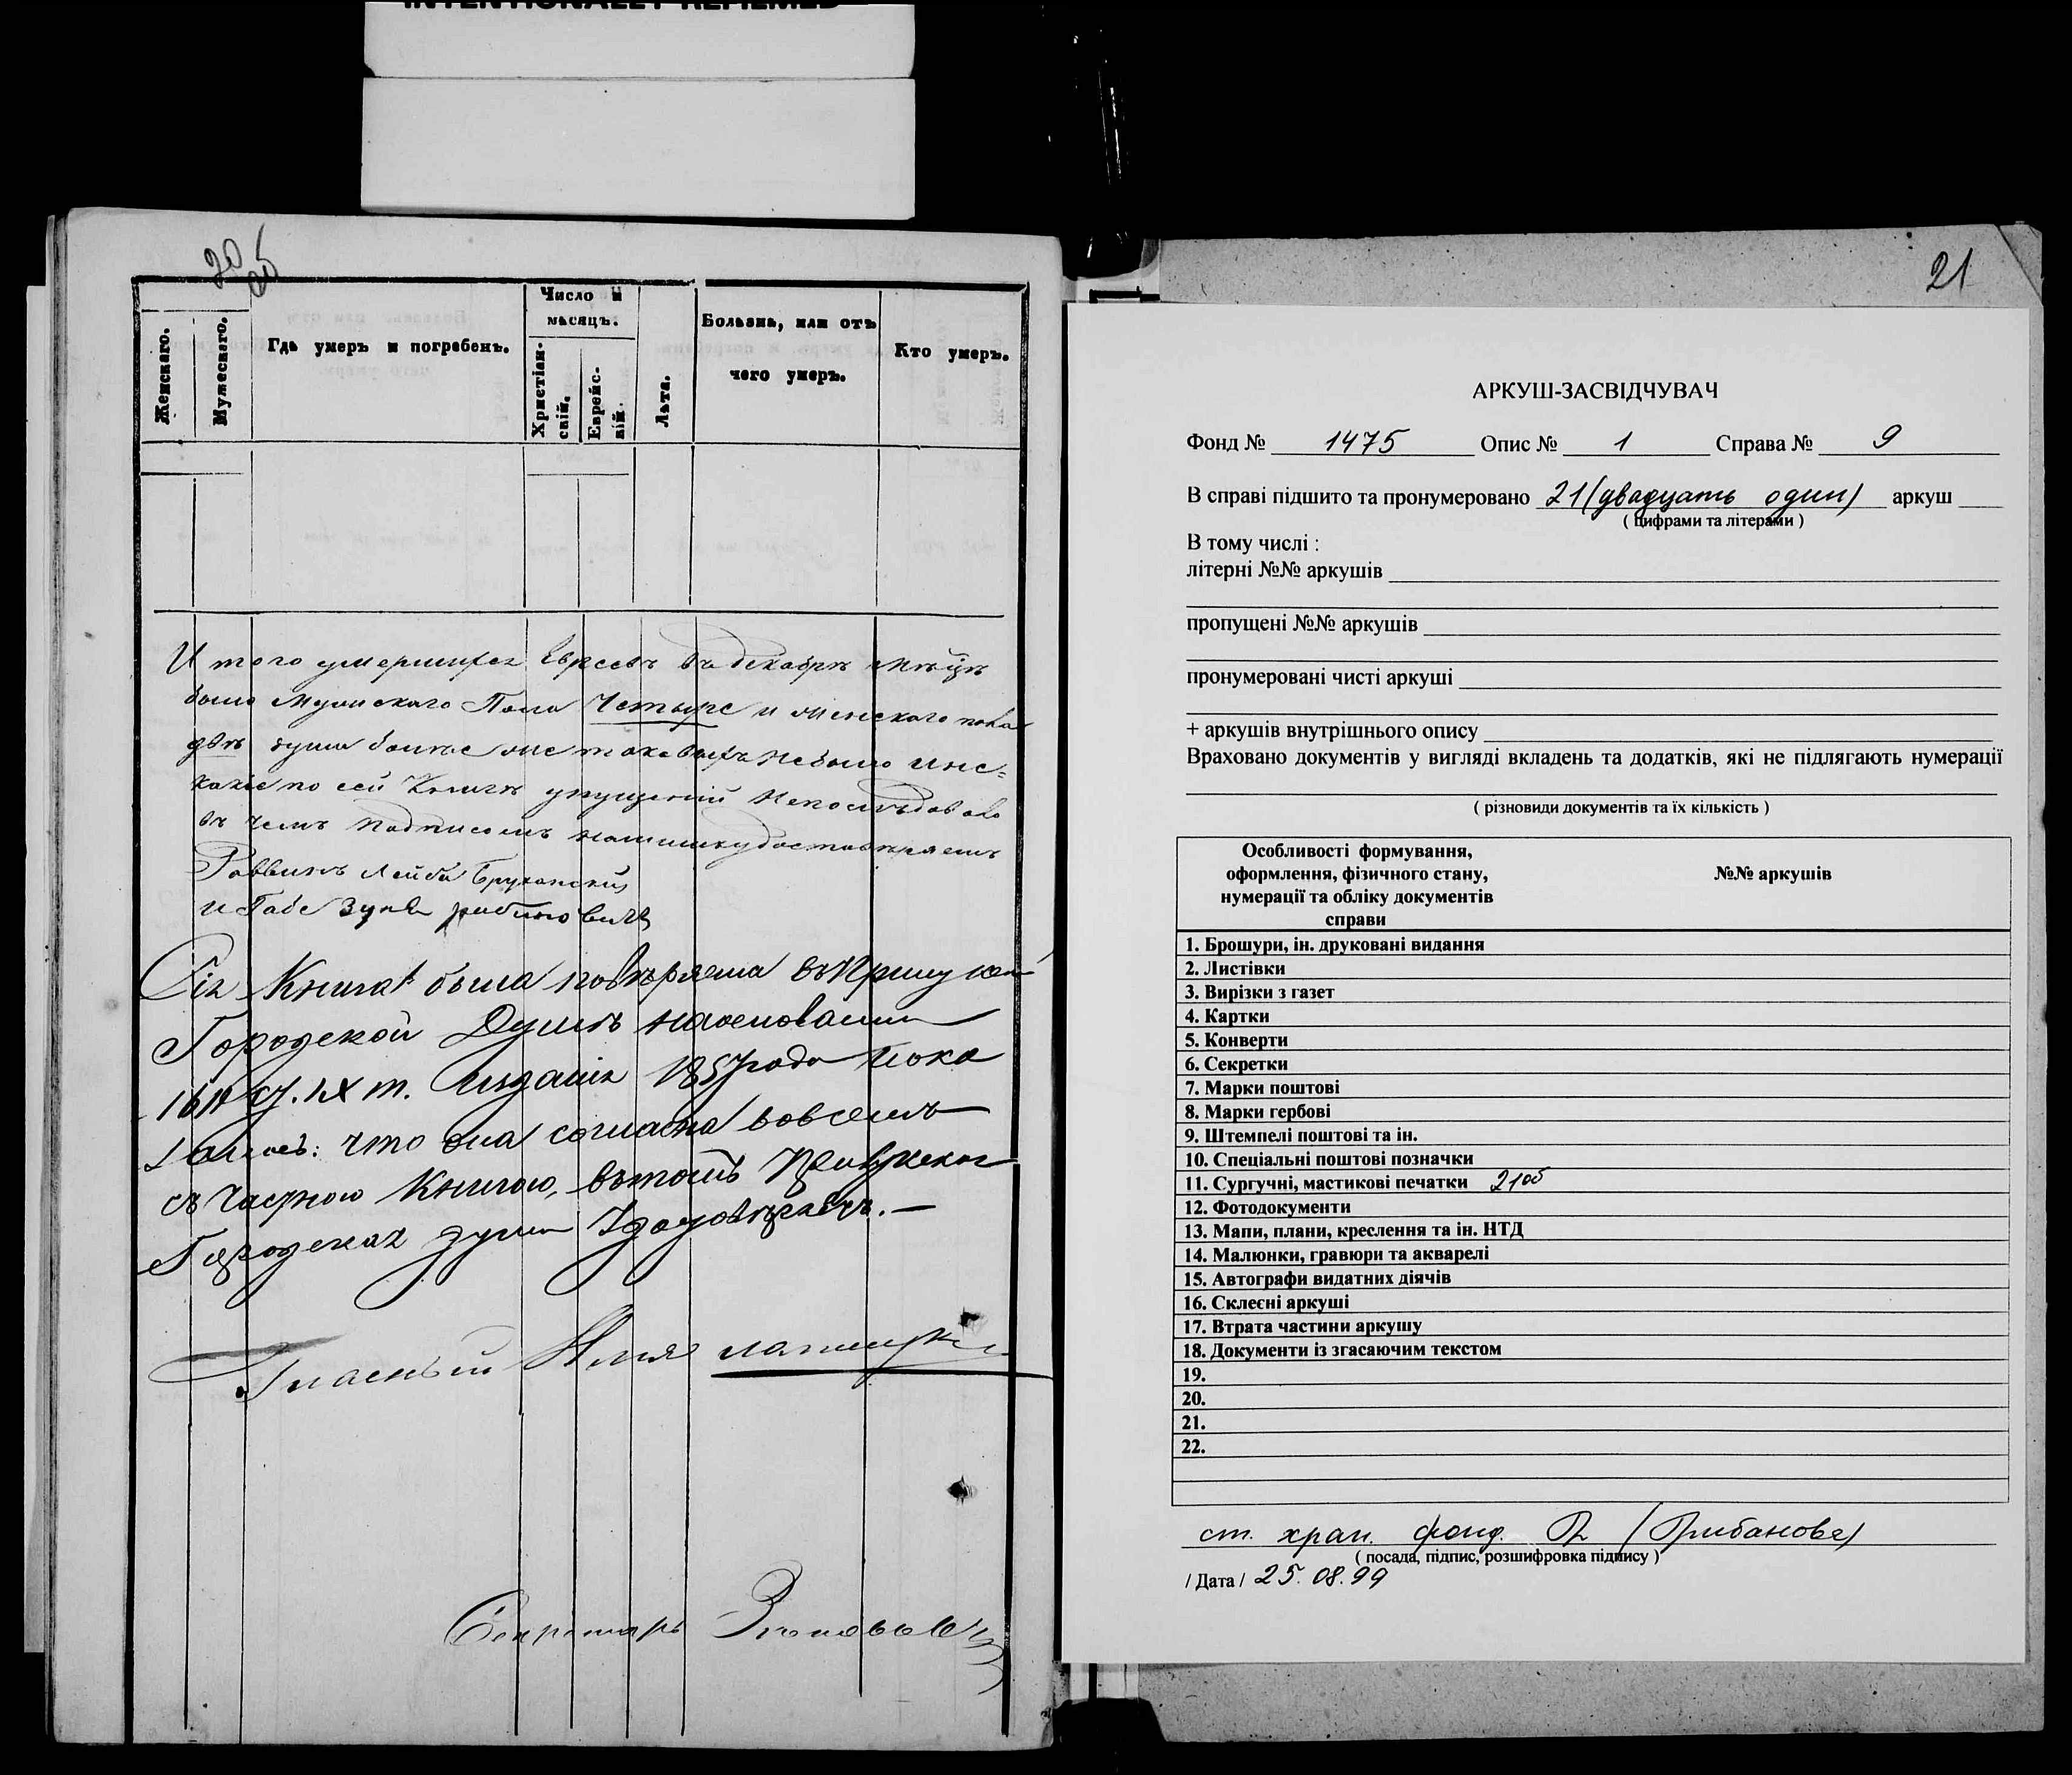 INTENTIONALLY REFILMED
20 об
Женскаго.
Мужескаго.
Гдѣ умеръ и погребенъ.
Число и мѣсяцъ.
Христіанскій.
Еврейскій.
Лѣта.
Болѣзнь, или отъ чего умеръ.
Кто умеръ.
И того умершихъ Евреевъ въ декабрѣ мѣсцѣ
было Мужскаго Пола Четыре и женскаго пола
двѣ души болѣе же таковыхъ небыло и ни-
какіе по сей Книгѣ упущеній Непослѣдовало
въ чемъ подписомъ нашимъ удостовѣряемъ
Раввинъ Лейба
и Габе рабиновичъ
Сія Книга была повѣряема въ
Городской Думѣ на основаніи
ст. IX т. изданія 1857 года и ока
залось: что она согласна вовсемъ
съ Частною Книгою, въ томъ
Городская дума Удостовѣряетъ.—
Гласный Илья
Секретарь
21
АРКУШ-ЗАСВІДЧУВАЧ
Фонд № 1475 Опис № 1 Справа № 9
В справі підшито та пронумеровано 21 (двадцать один) аркуш
( цифрами та літерами )
В тому числі :
літерні №№ аркушів
пропущені №№ аркушів
пронумеровані чисті аркуші
+ аркушів внутрішнього опису
Враховано документів у вигляді вкладень та додатків, які не підлягають нумерації
( різновиди документів та їх кількість )
Особливості формування,
оформлення, фізичного стану,
нумерації та обліку документів
справи
№№ аркушів
1. Брошури, ін. друковані видання
2. Листівки
3. Вирізки з газет
4. Картки
5. Конверти
6. Секретки
7. Марки поштові
8. Марки гербові
9. Штемпелі поштові та ін.
10. Спеціальні поштові позначки
11. Сургучні, мастикові печатки 21об
12. Фотодокументи
13. Мапи, плани, креслення та ін. НТД
14. Малюнки, гравюри та акварелі
15. Автографи видатних діячів
16. Склеєні аркуші
17. Втрата частини аркушу
18. Документи із згасаючим текстом
19.
20.
21.
22.
ст. хран. фонд. (Грибанова)
( посада, підпис, розшифровка підпису )
/ Дата / 25. 08. 99